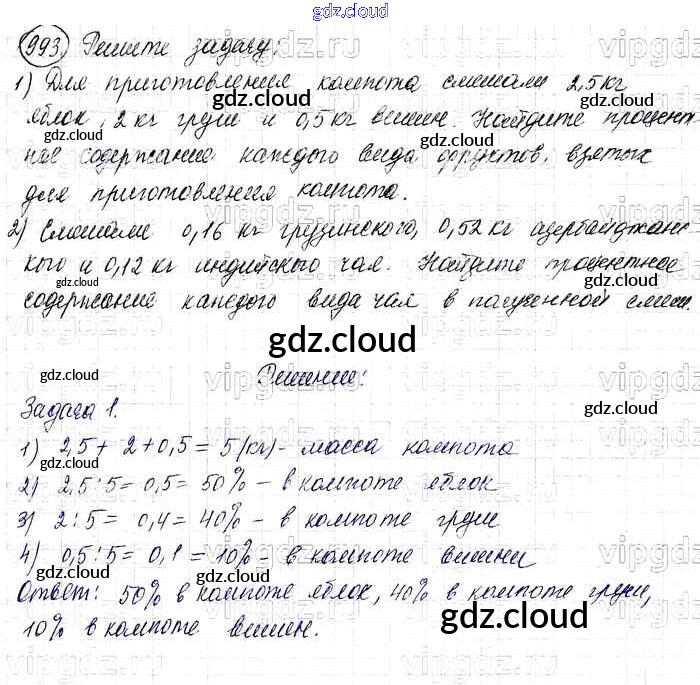 gdz.cloud
993. Решите задачу:
1) Для приготовления компота смешали 2,5 кг
gdz.cloud
яблок, 2 кг груш и 0,5 кг вишен. Найдите процент-
gdz.cloud
ное содержание каждого вида фруктов, взятых
gdz.cloud
для приготовления компота.
2) Смешали 0,16 кг грузинского, 0,52 кг азербайджанс-
gdz.cloud
кого и 0,12 кг индийского чая. Найдите процентное
содержание каждого вида чая в полученной смеси.
gdz.cloud
gdz.cloud
Решение:
gdz.cloud
Задача 1.
1) 2,5 + 2 + 0,5 = 5 (кг) - масса компота
gdz.cloud
2) 2,5 : 5 = 0,5 = 50% - в компоте яблок
gdz.cloud
3) 2 : 5 = 0,4 = 40% - в компоте груш
4) 0,5 : 5 = 0,1 = 10% - в компоте вишни
gdz.cloud
Ответ: 50% в компоте яблок, 40% в компоте груш,
gdz.cloud
10% в компоте вишен.
gdz.cloud